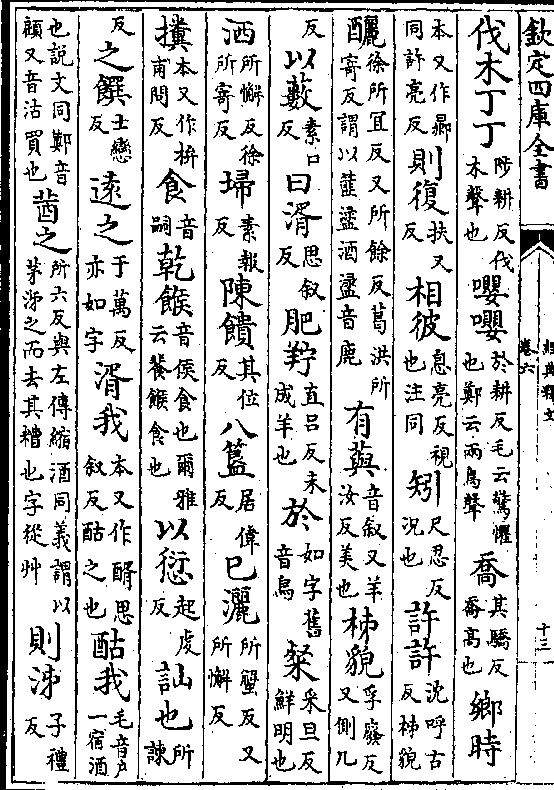 欽定四庫全書
經典釋文
卷六
十三
伐木丁丁陟耕反伐木聲也嚶嚶於耕反毛云驚懼也鄭云兩鳥聲喬其驕反喬高也鄉時
本又作曏同許亮反則復扶又反相彼息亮反視也注同矧尺忍反況也許許沈呼古反柹貌
釃徐所宜反又所餘反葛洪所寄反謂以筐盝酒盝音鹿有藇音叙又羊汝反美也柹貌孚廢反又側几
反以藪素口反曰湑思叙反肥羜直呂反未成羊也於如字舊音烏粲采旦反鮮明也
洒所懈反徐所寄反埽素報反陳饋其位反八簋居偉反已灑所蟹反又所懈反
㩳本又作拚甫問反食音嗣乾餱音侯食也爾雅云餥餱食也以愆起虔反訕也所諫
反之饌士戀反遠之于萬反亦如字湑我本又作醑思叙反酤之也酤我毛音戶一宿酒
也說文同鄭音顧又音沽買也莤之所六反與左傳縮酒同義謂以茅泲之而去其糟也字從艸則泲子禮反